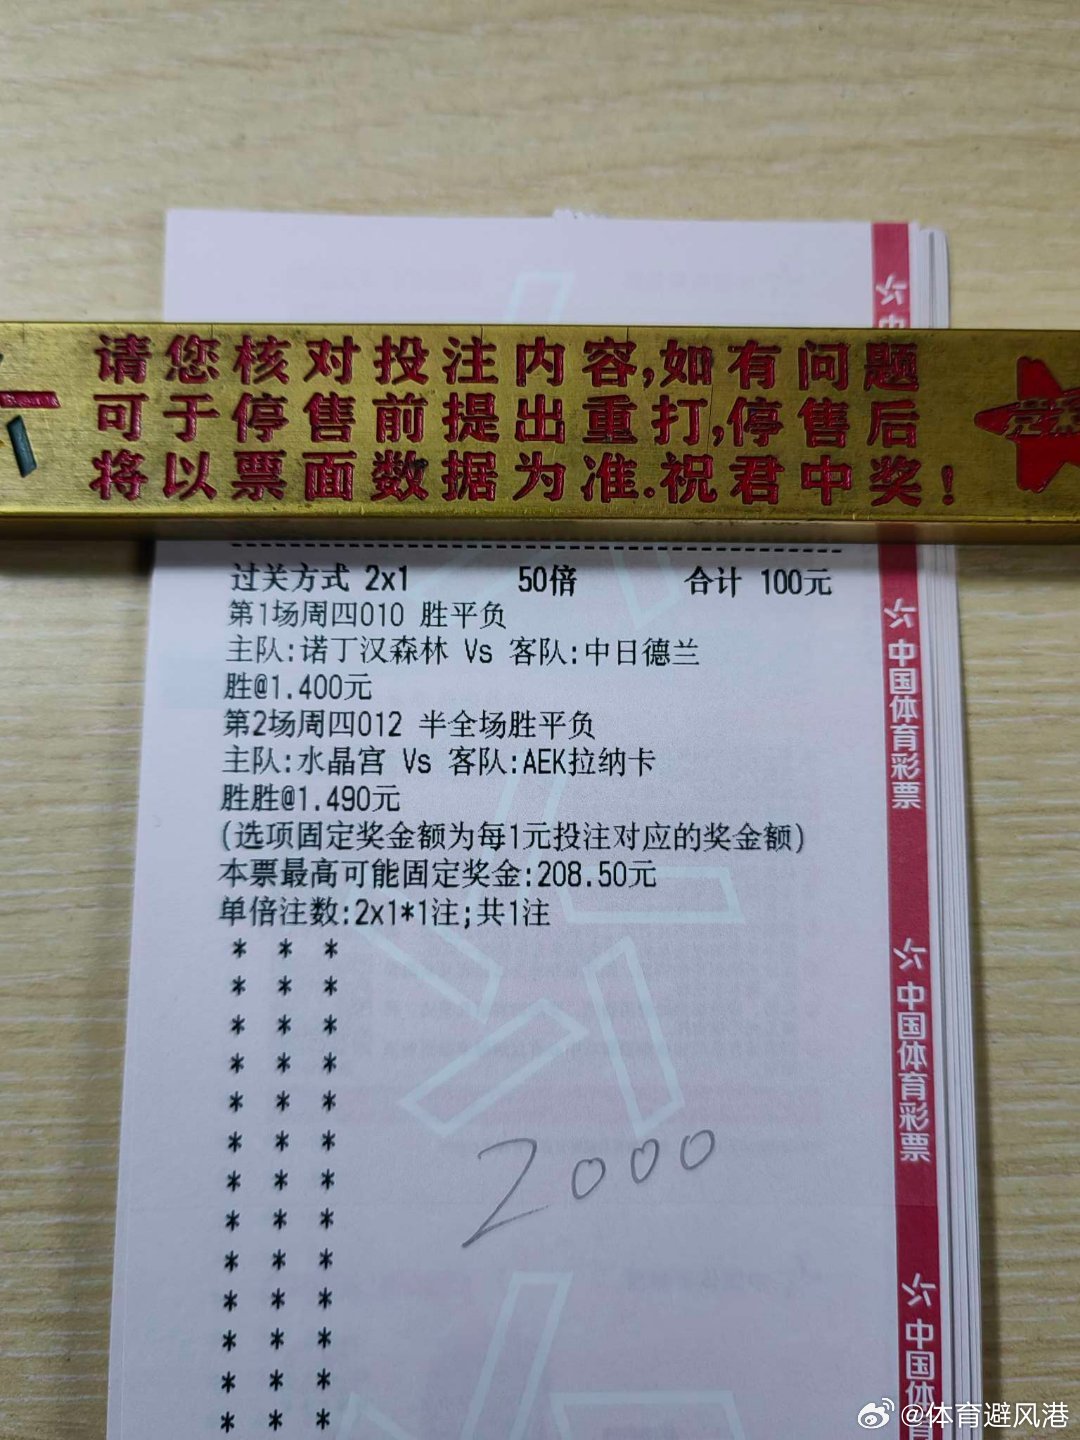 请您核对投注内容,如有问题
可于停售前提出重打,停售后
将以票面数据为准.祝君中奖!
过关方式 2x1 50倍 合计 100元
第1场周四010 胜平负
主队:诺丁汉森林 Vs 客队:中日德兰
胜@1.400元
第2场周四012 半全场胜平负
主队:水晶宫 Vs 客队:AEK拉纳卡
胜胜@1.490元
(选项固定奖金额为每1元投注对应的奖金额)
本票最高可能固定奖金:208.50元
单倍注数:2x1*1注;共1注
* * *
* * *
* * *
* * *
* * *
* * *
* * *
* * *
* * *
* * *
* * *
* * *
* * *
2000
中国体育彩票
中国体育彩票
中国体育
@体育避风港